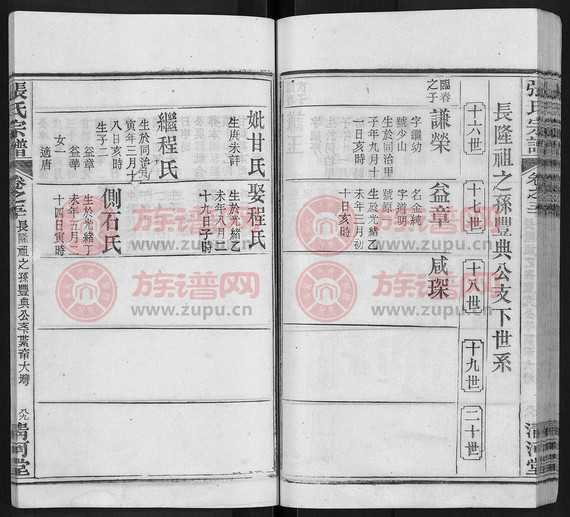 長隆祖之孫豐典公支下世系
十六世
十七世
十八世
十九世
二十世
臨春之子
謙榮
字繼幼
號少山
生於同治甲
子年九月十
一日亥時
益章
名金純
字道明
號原一
生於光緒乙
未年三月初
十日亥時
咸琛
妣甘氏
生庚未詳
繼程氏
生於同治丙
寅年三月十
八日亥時
生子二
益章
益華
女一
適唐
娶程氏
生於光緒乙
未年八月二
十九日子時
側石氏
生於光緒丁
未年五月二
十四日寅時
張氏宗譜
長隆祖之孫豐典公
八九
清河堂
張氏宗譜
清河堂
族谱网
www.zupu.cn
族谱网
www.zupu.cn
族谱网
www.zupu.cn
族谱网
www.zupu.cn